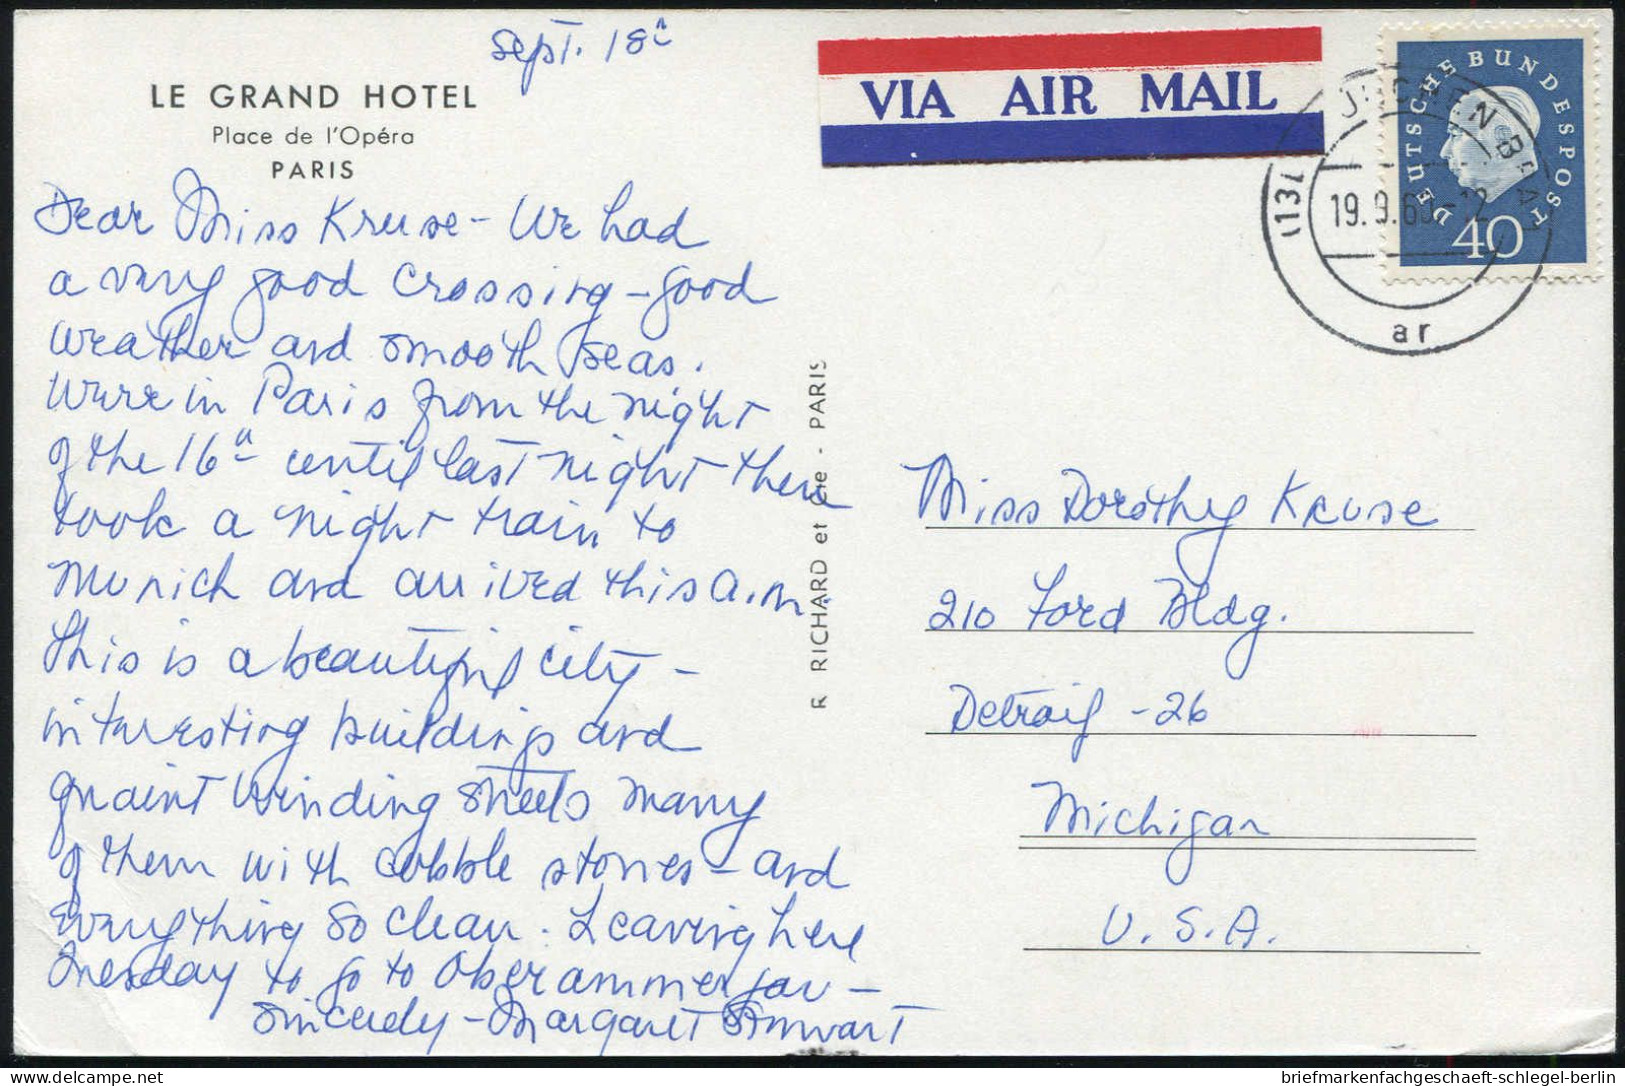 Sept. 18th
LE GRAND HOTEL
Place de l'Opéra
PARIS
Dear Miss Kruse - We had
a very good crossing - good
weather and smooth seas.
Were in Paris from the night
of the 16th until last night then
took a night train to
Munich and arrived this a.m.
This is a beautiful city -
interesting buildings and
quaint winding streets many
of them with cobble stones - and
everything so clean. Leaving here
Tuesday to go to Oberammergau -
Sincerely - Margaret
R RICHARD et Cie - PARIS
VIA AIR MAIL
DEUTSCHE BUNDESPOST
40
19.9.60-12
ar
Miss Dorothy Kruse
210 Ford Bldg.
Detroit - 26
Michigan
U.S.A.
delcampe.net
briefmarkenfachgeschaeft-schlegel-berlin